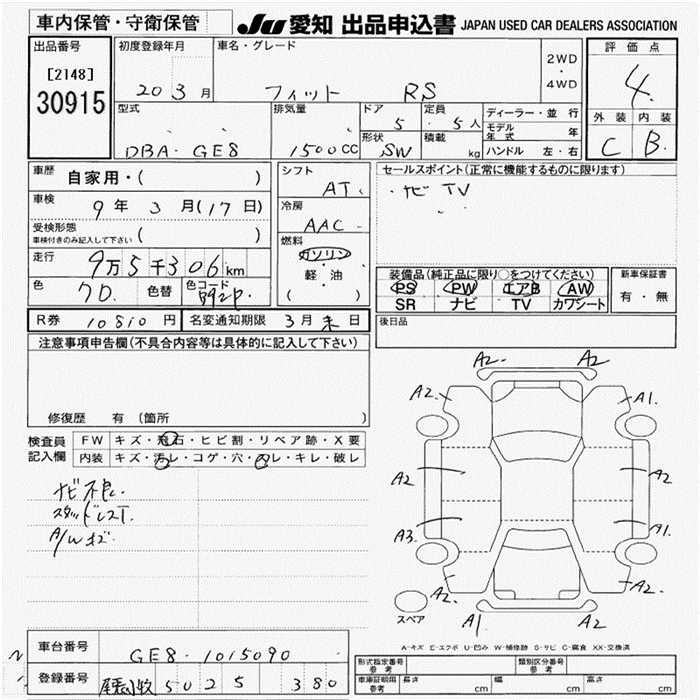 車内保管・守衛保管
JU 愛知 出品申込書 JAPAN USED CAR DEALERS ASSOCIATION
出品番号
[2148]
30915
初度登録年月
20 3 月
車名・グレード
フィット RS
2WD
・
4WD
評価点
4
外装 内装
C B
型式
DBA・GE8
排気量
1500 CC
ドア
5
定員
5 人
形状
SW
積載
kg
ディーラー・並行
モデル年式 年
ハンドル 左・右
車歴 自家用・( )
車検 9 年 3 月 (17 日)
受検形態
車検付きのみ記入して下さい ( )
走行 9万5千306 km
色 7D. 色替 色コード B92P.
シフト
AT.
冷房
AAC
燃料
ガソリン
・
軽・油
( )
セールスポイント(正常に機能するものに限ります)
ナビ TV
装備品(純正品に限り○をつけてください)
PS PW エアB AW
SR ナビ TV カワシート
新車保証書
有・無
R券 10810 円 名変通知期限 3月 末 日
後日品
注意事項申告欄(不具合内容等は具体的に記入して下さい)
修復歴 有 (箇所 )
検査員記入欄
FW キズ・飛石・ヒビ割・リペア跡・X要
内装 キズ・汚レ・コゲ・穴・スレ・キレ・破レ
ナビ不良.
スタッドレスT.
A/Wキズ.
A2 A2
A2. A1.
A2 A2
A3. A1.
A2. A2.
A1 A2
スペア
A-キズ E-エクボ U-凹み W-補修跡 S-サビ C-腐食 XX-交換済
車台番号 GE8-1015090
登録番号 尾張小牧 502 5 380
型式指定番号
参考
類別区分番号
参考
車庫証明用
参考
長さ cm 幅 cm 高さ cm